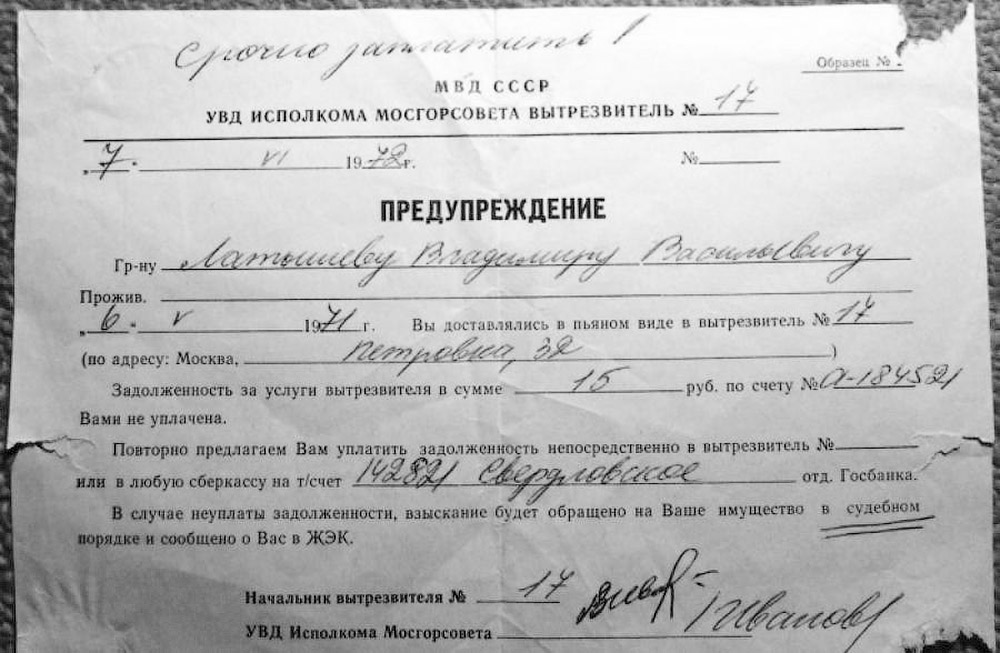 Срочно заплатить!
Образец №
МВД СССР
УВД ИСПОЛКОМА МОСГОРСОВЕТА ВЫТРЕЗВИТЕЛЬ № 17
„7." VI 1972 г. №
ПРЕДУПРЕЖДЕНИЕ
Гр-ну Латышеву Владимиру Васильевичу
Прожив.
„6" V 1971 г. Вы доставлялись в пьяном виде в вытрезвитель № 17
(по адресу: Москва, Петровка, 32)
Задолженность за услуги вытрезвителя в сумме 15 руб. по счету № А-184521
Вами не уплачена.
Повторно предлагаем Вам уплатить задолженность непосредственно в вытрезвитель №
или в любую сберкассу на т/счет 142821 Свердловское отд. Госбанка.
В случае неуплаты задолженности, взыскание будет обращено на Ваше имущество в судебном
порядке и сообщено о Вас в ЖЭК.
Начальник вытрезвителя № 17
УВД Исполкома Мосгорсовета Иванов